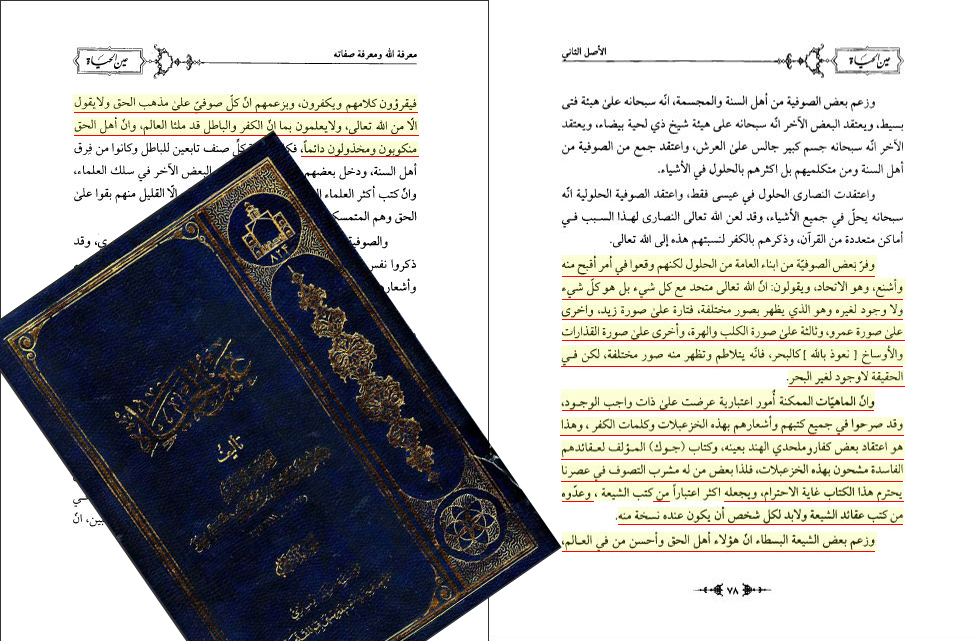 الأصل الثاني
عين الحياة
وزعم بعض الصوفية من أهل السنة والمجسمة، انّه سبحانه على هيئة فتى
بسيط، ويعتقد البعض الآخر انّه سبحانه على هيئة شيخ ذي لحية بيضاء، ويعتقد
الآخر انّه سبحانه جسم كبير جالس على العرش، واعتقد جمع من الصوفية من
أهل السنة ومن متكلميهم بل اكثرهم بالحلول في الأشياء.
واعتقدت النصارى الحلول في عيسى فقط، واعتقد الصوفية الحلولية انّه
سبحانه يحلّ في جميع الأشياء، وقد لعن الله تعالى النصارى لهذا السبب في
أماكن متعددة من القرآن، وذكرهم بالكفر لنسبتهم هذه إلى الله تعالى.
وفرّ بعض الصوفيّة من ابناء العامة من الحلول لكنهم وقعوا في أمر أقبح منه
وأشنع، وهو الاتحاد، ويقولون: انّ الله تعالى متحد مع كل شيء بل هو كلّ شيء
ولا وجود لغيره وهو الذي يظهر بصور مختلفة، فتارة على صورة زيد، واخرى
على صورة عمرو، وثالثة على صورة الكلب والهرة، وأخرى على صورة القذارات
والأوساخ [ نعوذ بالله ] كالبحر، فانّه يتلاطم وتظهر منه صور مختلفة، لكن في
الحقيقة لاوجود لغير البحر.
وانّ الماهيّات الممكنة أُمور اعتبارية عرضت على ذات واجب الوجود،
وقد صرحوا في جميع كتبهم وأشعارهم بهذه الخزعبلات وكلمات الكفر ، وهذا
هو اعتقاد بعض كفار وملحدي الهند بعينه، وكتاب (جوك) المؤلف لعقائدهم
الفاسدة مشحون بهذه الخزعبلات، فلذا بعض من له مشرب التصوف في عصرنا
يحترم هذا الكتاب غاية الاحترام، ويجعله اكثر اعتباراً من كتب الشيعة ، وعدّوه
من كتب عقائد الشيعة ولابد لكل شخص أن يكون عنده نسخة منه.
وزعم بعض الشيعة البسطاء انّ هؤلاء أهل الحق وأحسن من في العالم،
٧٨
معرفة الله ومعرفة صفاته
عين الحياة
فيقرؤون كلامهم ويكفرون، وبزعمهم انّ كلّ صوفيّ على مذهب الحق ولايقول
الّا من الله تعالى، ولايعلمون بما انّ الكفر والباطل قد ملئا العالم، وانّ أهل الحق
منكوبون ومخذولون دائماً، كلّ صنف تابعين للباطل وكانوا من فِرق
أهل السنة، ودخل بعضهم البعض الآخر في سلك العلماء،
وانّ كتب أكثر العلماء الّا القليل منهم بقوا على
الحق وهم
والصوفية وقد
ذكروا
عين الحياة
تأليف
٨٢٤